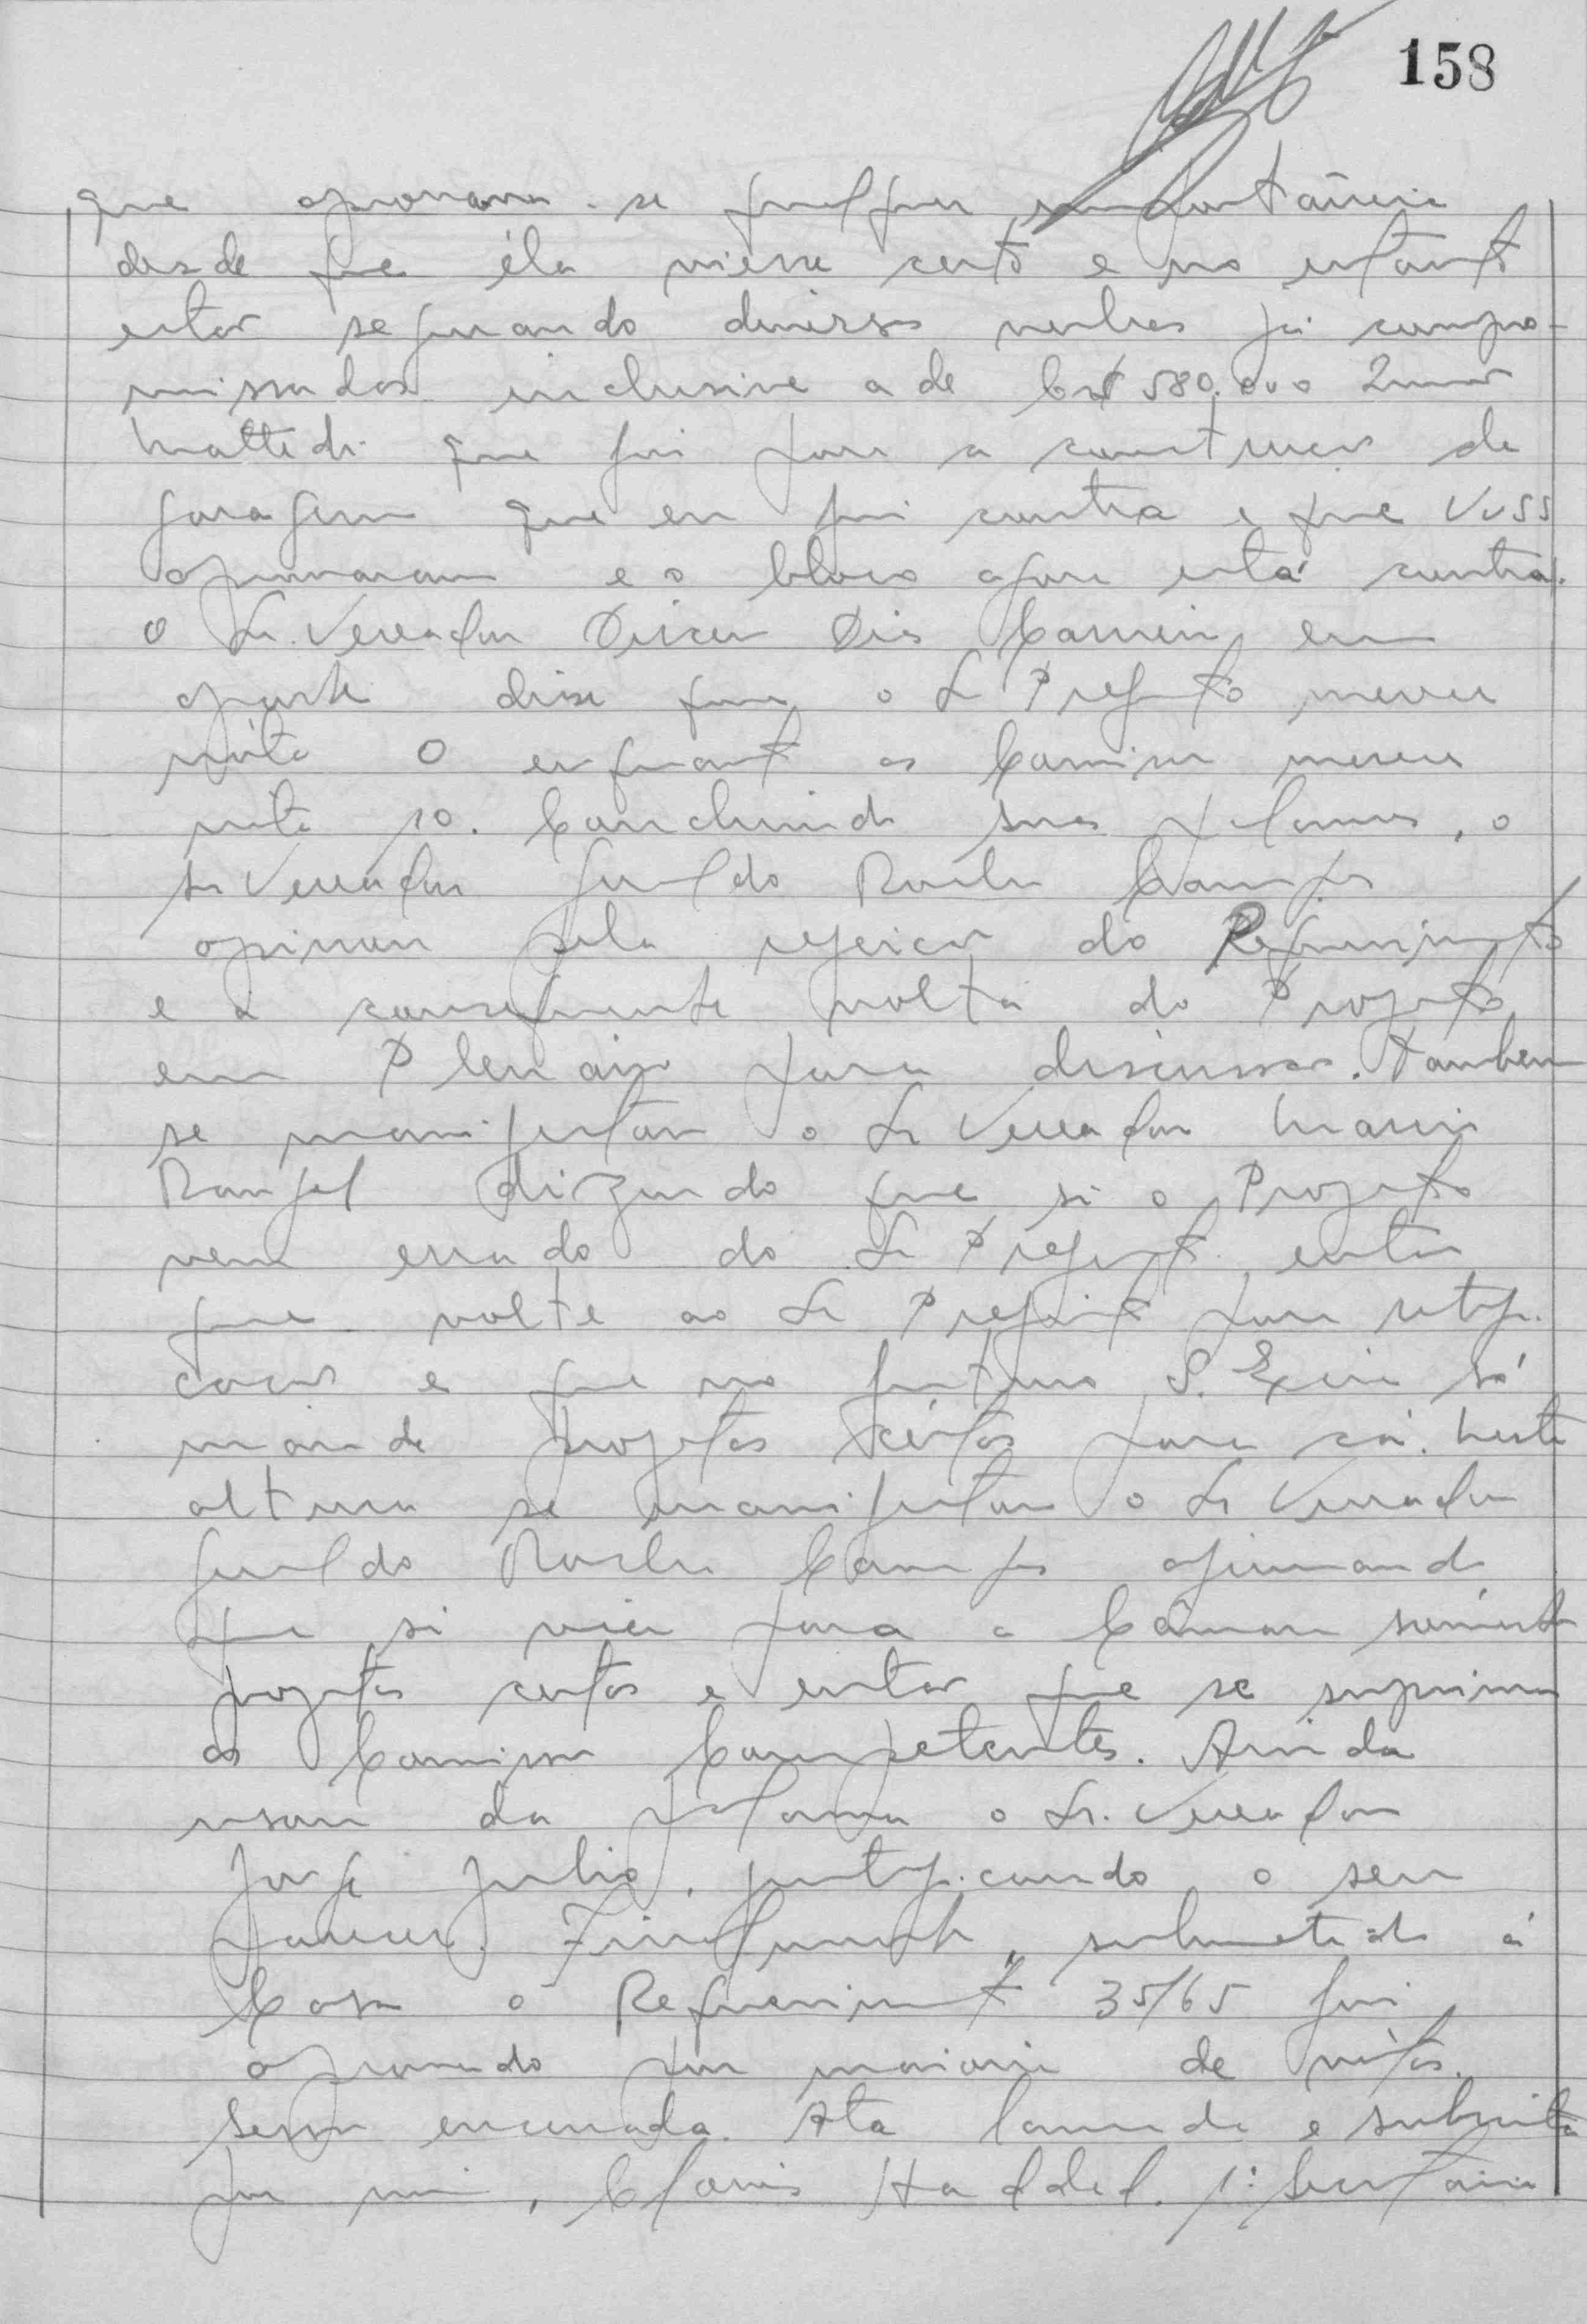 158
que aprovava-se qualquer importância
desde que éla viesse certo e no entanto
estar segurando diversas verbas já compro-
missadas inclusive a de Cr$ 580.000
Mattedi que foi para a construção de
garagem que eu fui contra e que VVSS
aprovaram e o bloco agora está contra.
O Sr. Vereador Dirceu Dis Carneiro, em
aparte disse que o Sr Prefeito merece
nóta 0 enquanto as Comissões merecem
nota 10. Concluindo suas palavras, o
Sr Vereador Geraldo Rocha Campos
opinou pela rejeição do Requerimento
e a consequente volta do Projeto
em Plenário para discussão. Tambem
se manifestou o Sr Vereador Mario
Rangel dizendo que si o Projeto
vem errado do Sr Prefeito, então
que volte ao Sr Prefeito para retifi-
cação e que no futuro S. Excia só
mande projetos cértos para cá. Nesta
altura se manifestou o Sr Vereador
Geraldo Rocha Campos afirmando
que si vier para a Câmara sómente
projetos certos e então que se suprima
as Comissões Competentes. Ainda
usou da palavra o Sr. Vereador
Jorge Julio, justificando o seu
parecer. Finalmente, submetido á
Casa o Requerimento 35/65 foi
aprovado por maioria de vótos.
Sessão encerrada. Ata lavrada e subscrita
por mim, Clovis Haddad. 1º Secretário